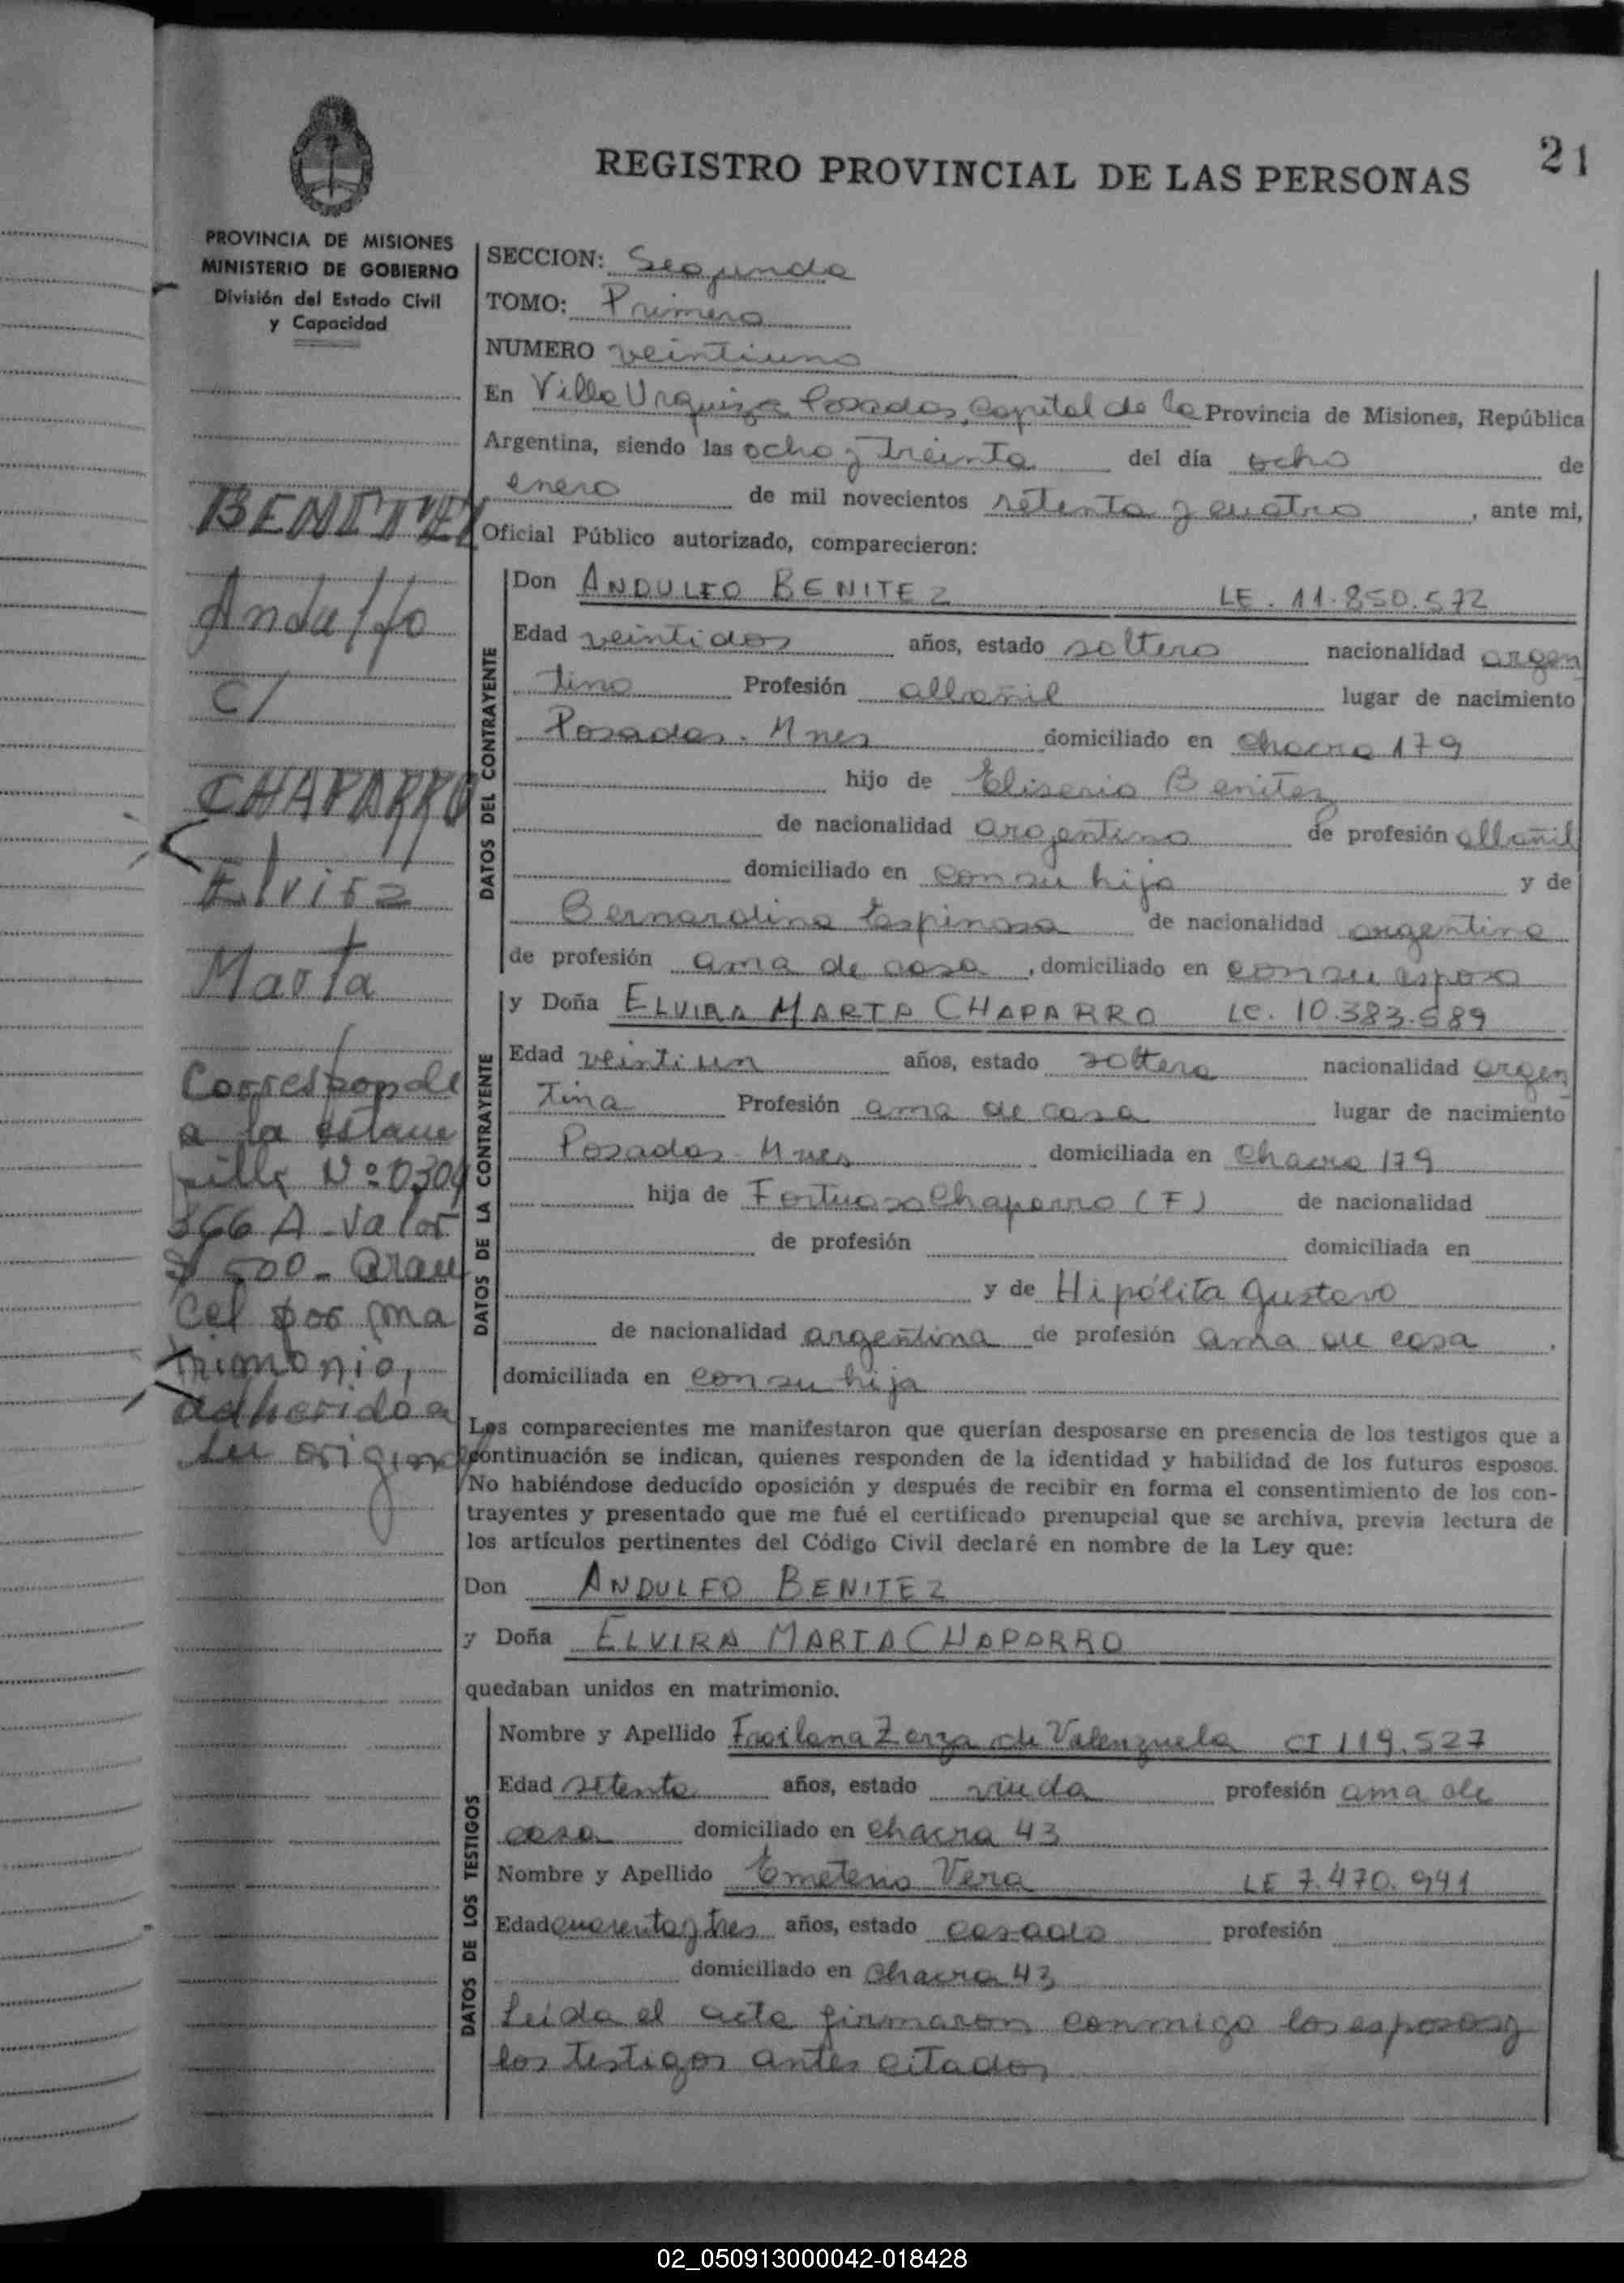 21
REGISTRO PROVINCIAL DE LAS PERSONAS
PROVINCIA DE MISIONES
MINISTERIO DE GOBIERNO
División del Estado Civil
y Capacidad
BENITEZ
Andulfo
C/
CHAPARRO
Elvira
Marta
Corresponde
a la estam
pilla Nº 0309
366 A - Valor
$ 500 - Aran
cel por ma
trimonio,
adherido a
su original
SECCION: Segunda
TOMO: Primero
NUMERO veintiuno
En Villa Urquiza Posadas, Capital de la Provincia de Misiones, República
Argentina, siendo las ocho y treinta del día ocho de
enero de mil novecientos setenta y cuatro, ante mi,
Oficial Público autorizado, comparecieron:
DATOS DEL CONTRAYENTE
Don ANDULFO BENITEZ LE. 11.850.572
Edad veintidos años, estado soltero nacionalidad argen
tino Profesión albañil lugar de nacimiento
Posadas. Mnes domiciliado en chacra 179
hijo de Eliserio Benitez
de nacionalidad argentino de profesión albañil
domiciliado en con su hijo y de
Bernardina Espinosa de nacionalidad argentina
de profesión ama de casa, domiciliado en con su esposo
DATOS DE LA CONTRAYENTE
y Doña ELVIRA MARTA CHAPARRO LC. 10.383.589
Edad veintiun años, estado soltera nacionalidad argen
tina Profesión ama de casa lugar de nacimiento
Posadas - Mnes domiciliada en Chacra 179
hija de Fortuoso Chaparro (F) de nacionalidad
de profesión domiciliada en
y de Hipólita Gustavo
de nacionalidad argentina de profesión ama de casa.
domiciliada en con su hija
Los comparecientes me manifestaron que querían desposarse en presencia de los testigos que a
continuación se indican, quienes responden de la identidad y habilidad de los futuros esposos.
No habiéndose deducido oposición y después de recibir en forma el consentimiento de los con-
trayentes y presentado que me fué el certificado prenupcial que se archiva, previa lectura de
los artículos pertinentes del Código Civil declaré en nombre de la Ley que:
Don ANDULFO BENITEZ
y Doña ELVIRA MARTA CHAPARRO
quedaban unidos en matrimonio.
DATOS DE LOS TESTIGOS
Nombre y Apellido Froilana Zerza de Valenzuela CI 119.527
Edad setenta años, estado viuda profesión ama de
casa domiciliado en chacra 43
Nombre y Apellido Emeterio Vera LE 7.470.941
Edad cuarenta y tres años, estado casado profesión
domiciliado en chacra 43
Leída el acta firmaron conmigo los esposos y
los testigos antes citados
02_050913000042-018428